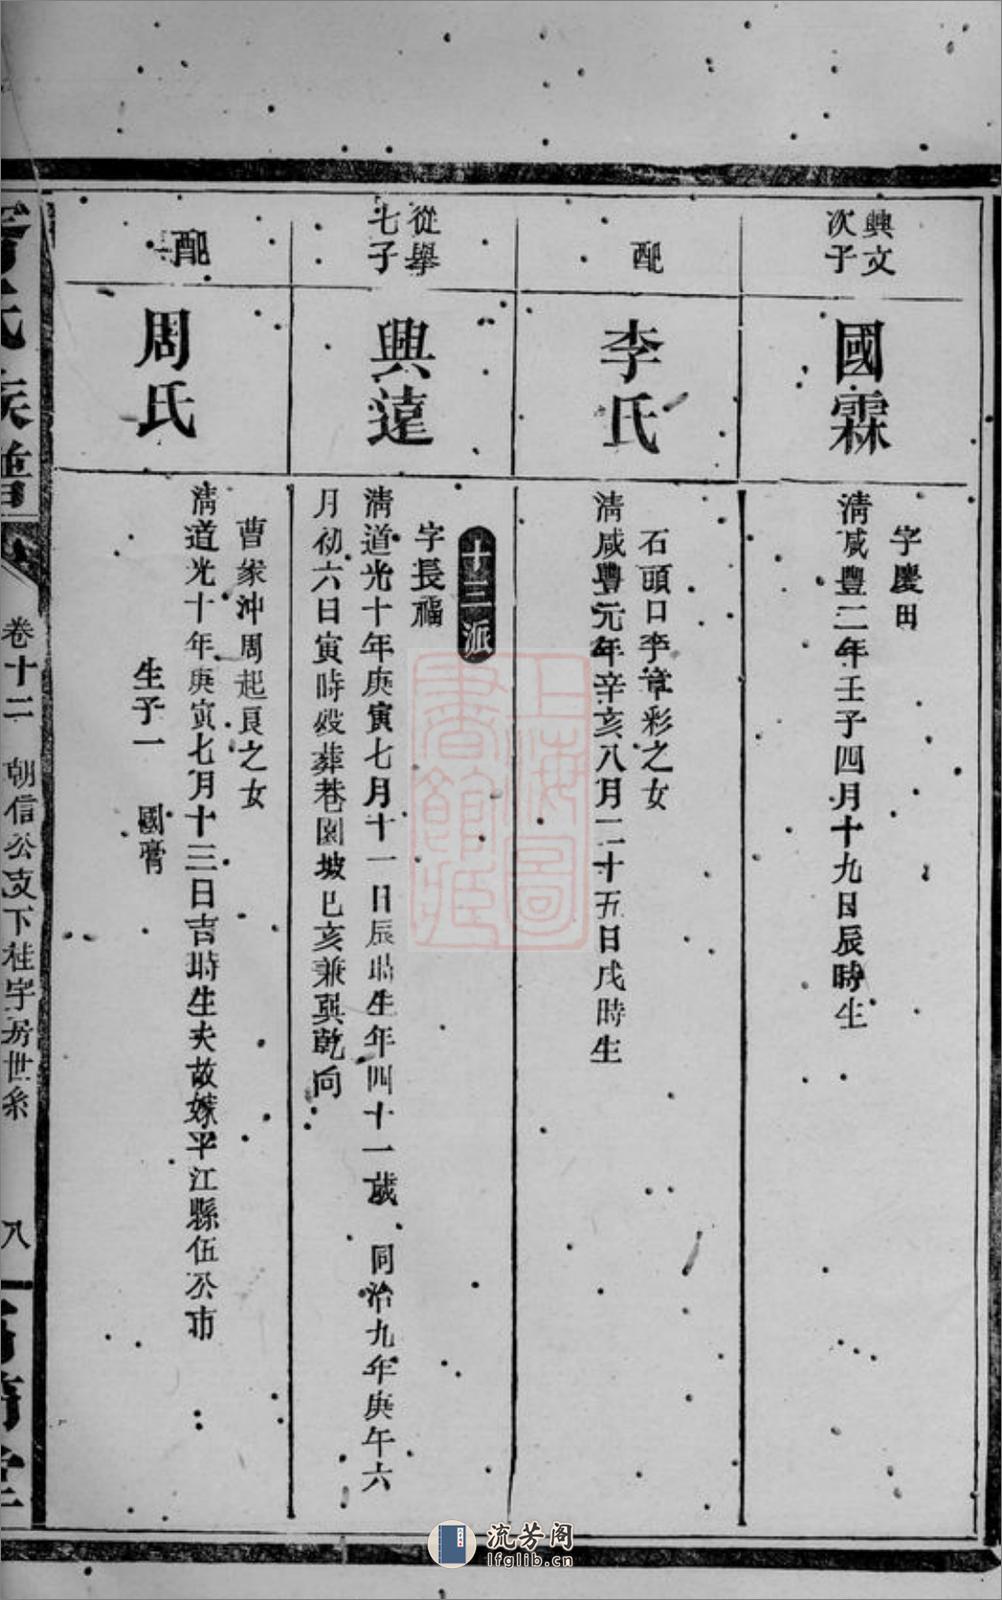 興文
次子
國霖
字慶田
清咸豐二年壬子四月十九日辰時生
配
李氏
石頭口李章彩之女
清咸豐元年辛亥八月二十五日戌時生
十三派
從舉
七子
興遠
字長福
清道光十年庚寅七月十一日辰時生年四十一歲 同治九年庚午六
月初六日寅時歿葬巷園坡巳亥兼巽乾向
配
周氏
曹家沖周起良之女
清道光十年庚寅七月十三日吉時生夫故嫁平江縣伍公市
生子一 國膏
氏族譜
卷十二 朝信公支下桂字房世系
八
堂
上海圖書館藏
流芳阁
lfglib.cn